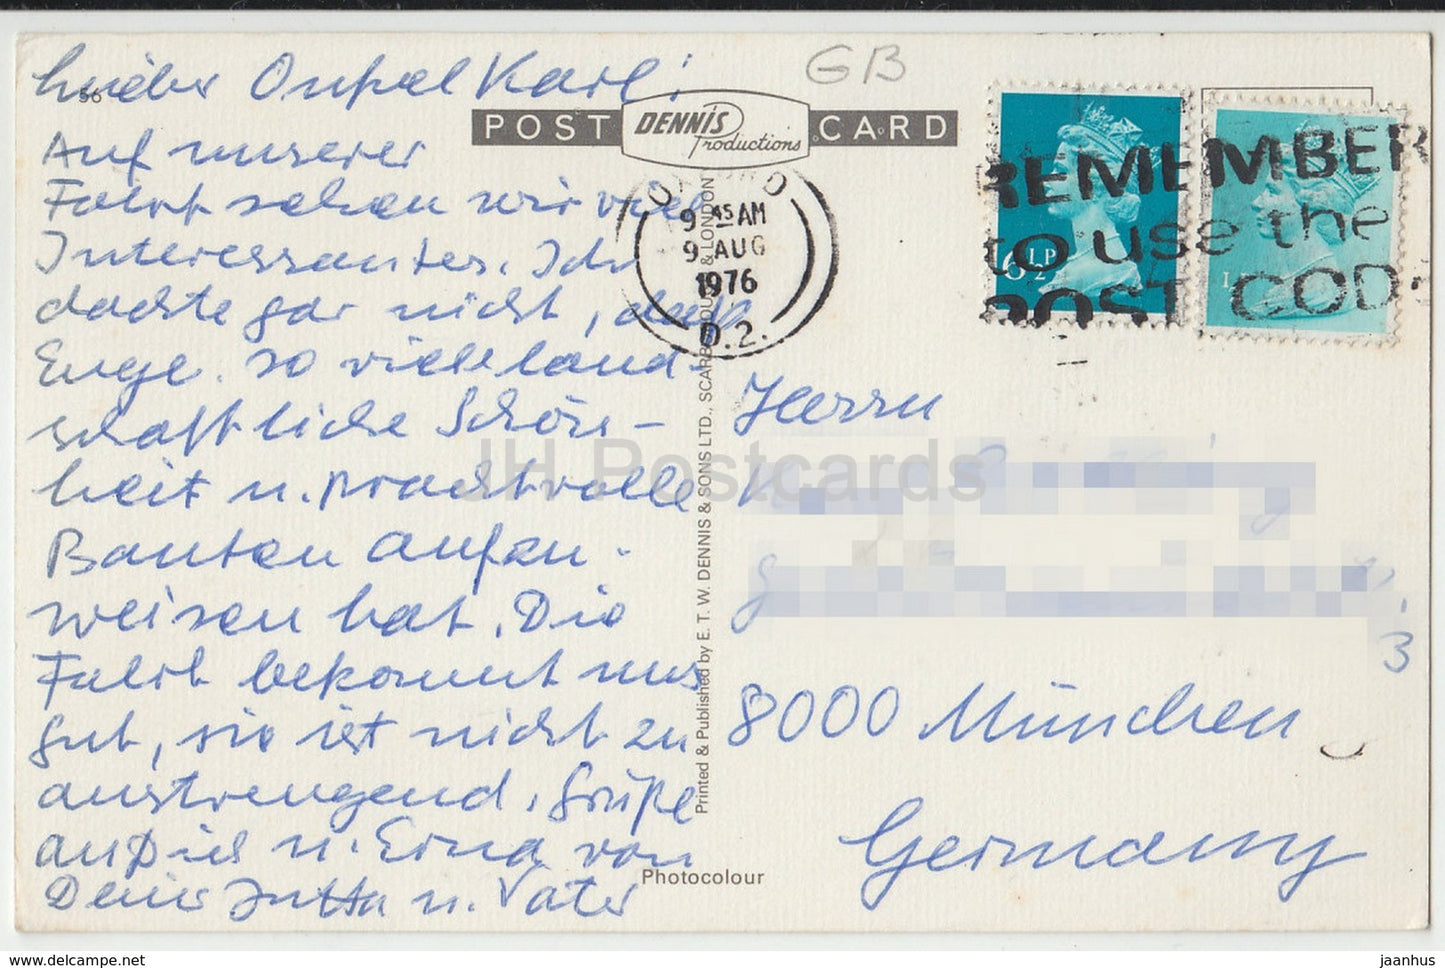 Lieber Onkel Karl!
56
Auf unserer
Fahrt sehen wir viel
Interessantes. Ich
dachte gar nicht, daß
Engl. so viele land-
schaftliche Schön-
heit u. prachtvolle
Bauten aufzu-
weisen hat. Die
Fahrt bekommt uns
gut, sie ist nicht zu
anstrengend. Grüße
an Dich u. Erna von
Deiner Jutta u. Vater
GB
POST DENNIS Productions CARD
9 45 AM
9 AUG
1976
D.2.
REMEMBER
to use the
POST CODE
6½P
Printed & Published by E. T. W. DENNIS & SONS LTD., SCARBOROUGH & LONDON
Herrn
3
8000 München
Germany
Photocolour
JH Postcards
www.delcampe.net
jaanhus